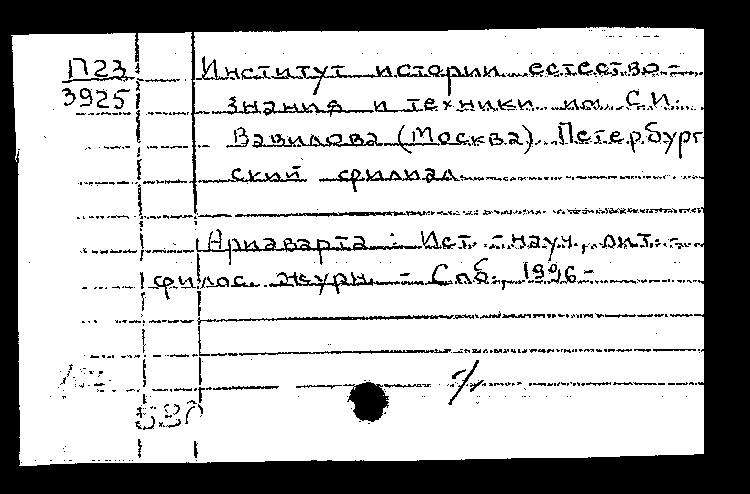 П23 Институт истории естество-
3925 знания и техники им. С.И.
Вавилова (Москва). Петербург
ский филиал.
Ариаварта : Ист.-науч., лит.-
филос. журн. - Спб., 1996-
б/г